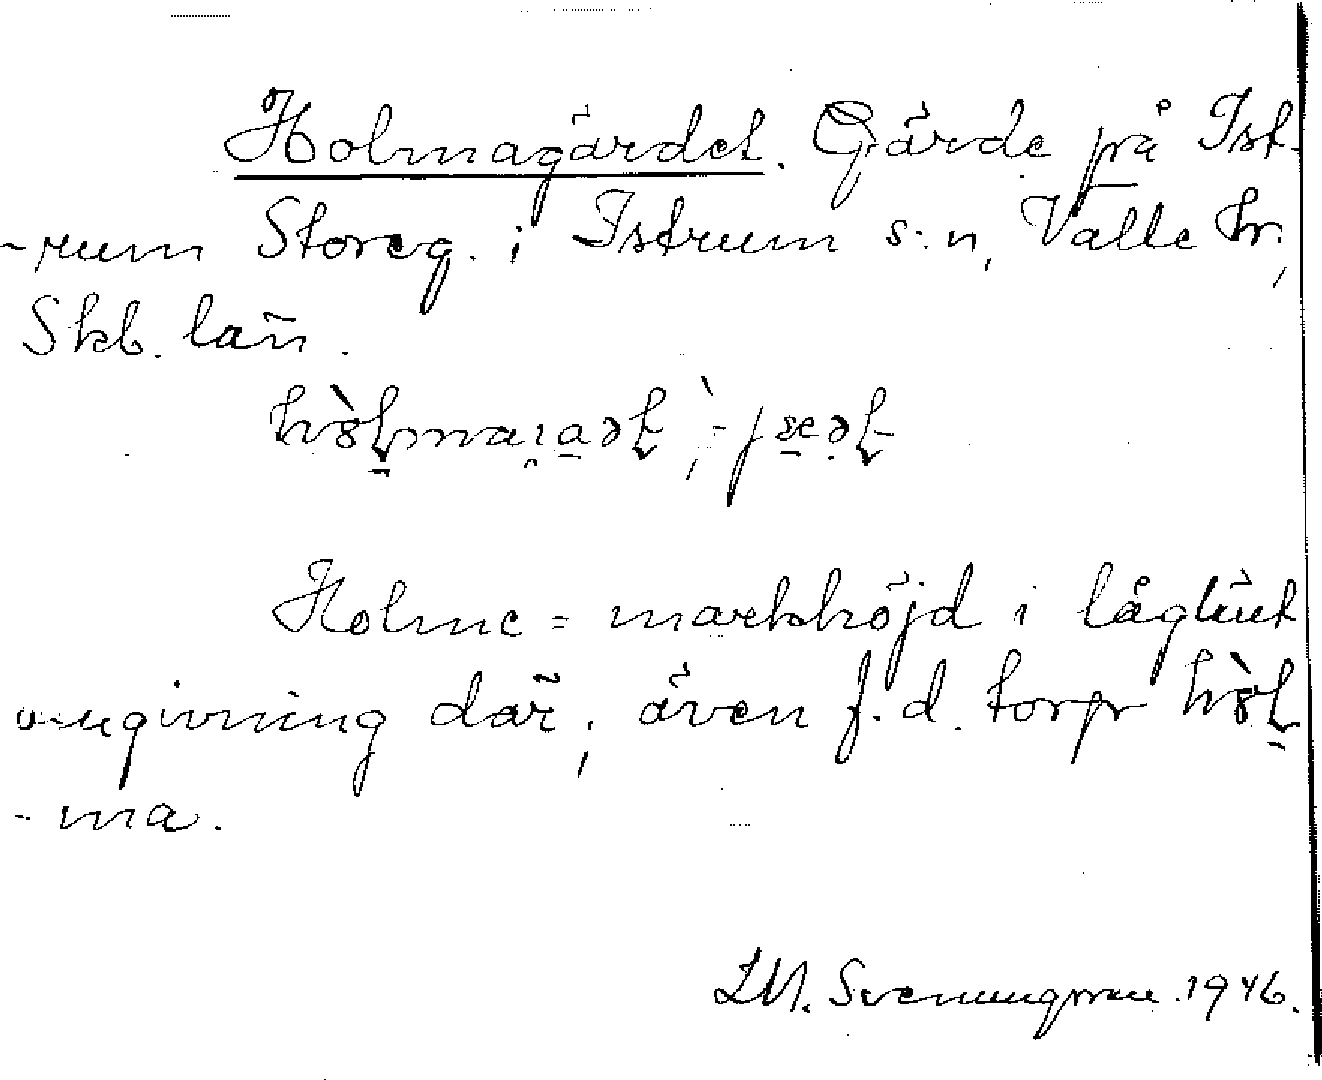 Holmagärdet. Gärde på Ist-
-rum Storeg. i Istrum s:n, Valle hr,
Skb. län.
Holme = markhöjd i låglänt
omgivning där; även f.d. torp
-ma.
Svenungsson 1946.